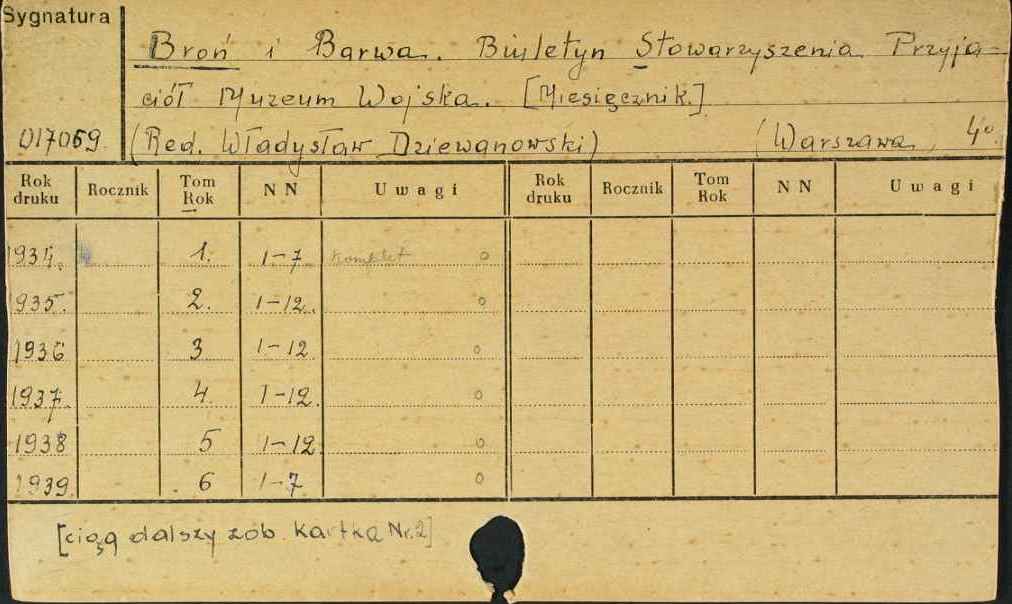 Sygnatura
Broń i Barwa. Biuletyn Stowarzyszenia Przyja-
ciół Muzeum Wojska. [Miesięcznik.]
017069. (Red. Władysław Dziewanowski) (Warszawa, 4°
Rok druku Rocznik Tom Rok NN Uwagi Rok druku Rocznik Tom Rok NN Uwagi
1934. 1. 1-7 komplet o
1935. 2. 1-12. o
1936 3 1-12 o
1937. 4. 1-12. o
1938 5 1-12 o
1939. 6 1-7 o
[ciąg dalszy zob. kartka Nr. 2]